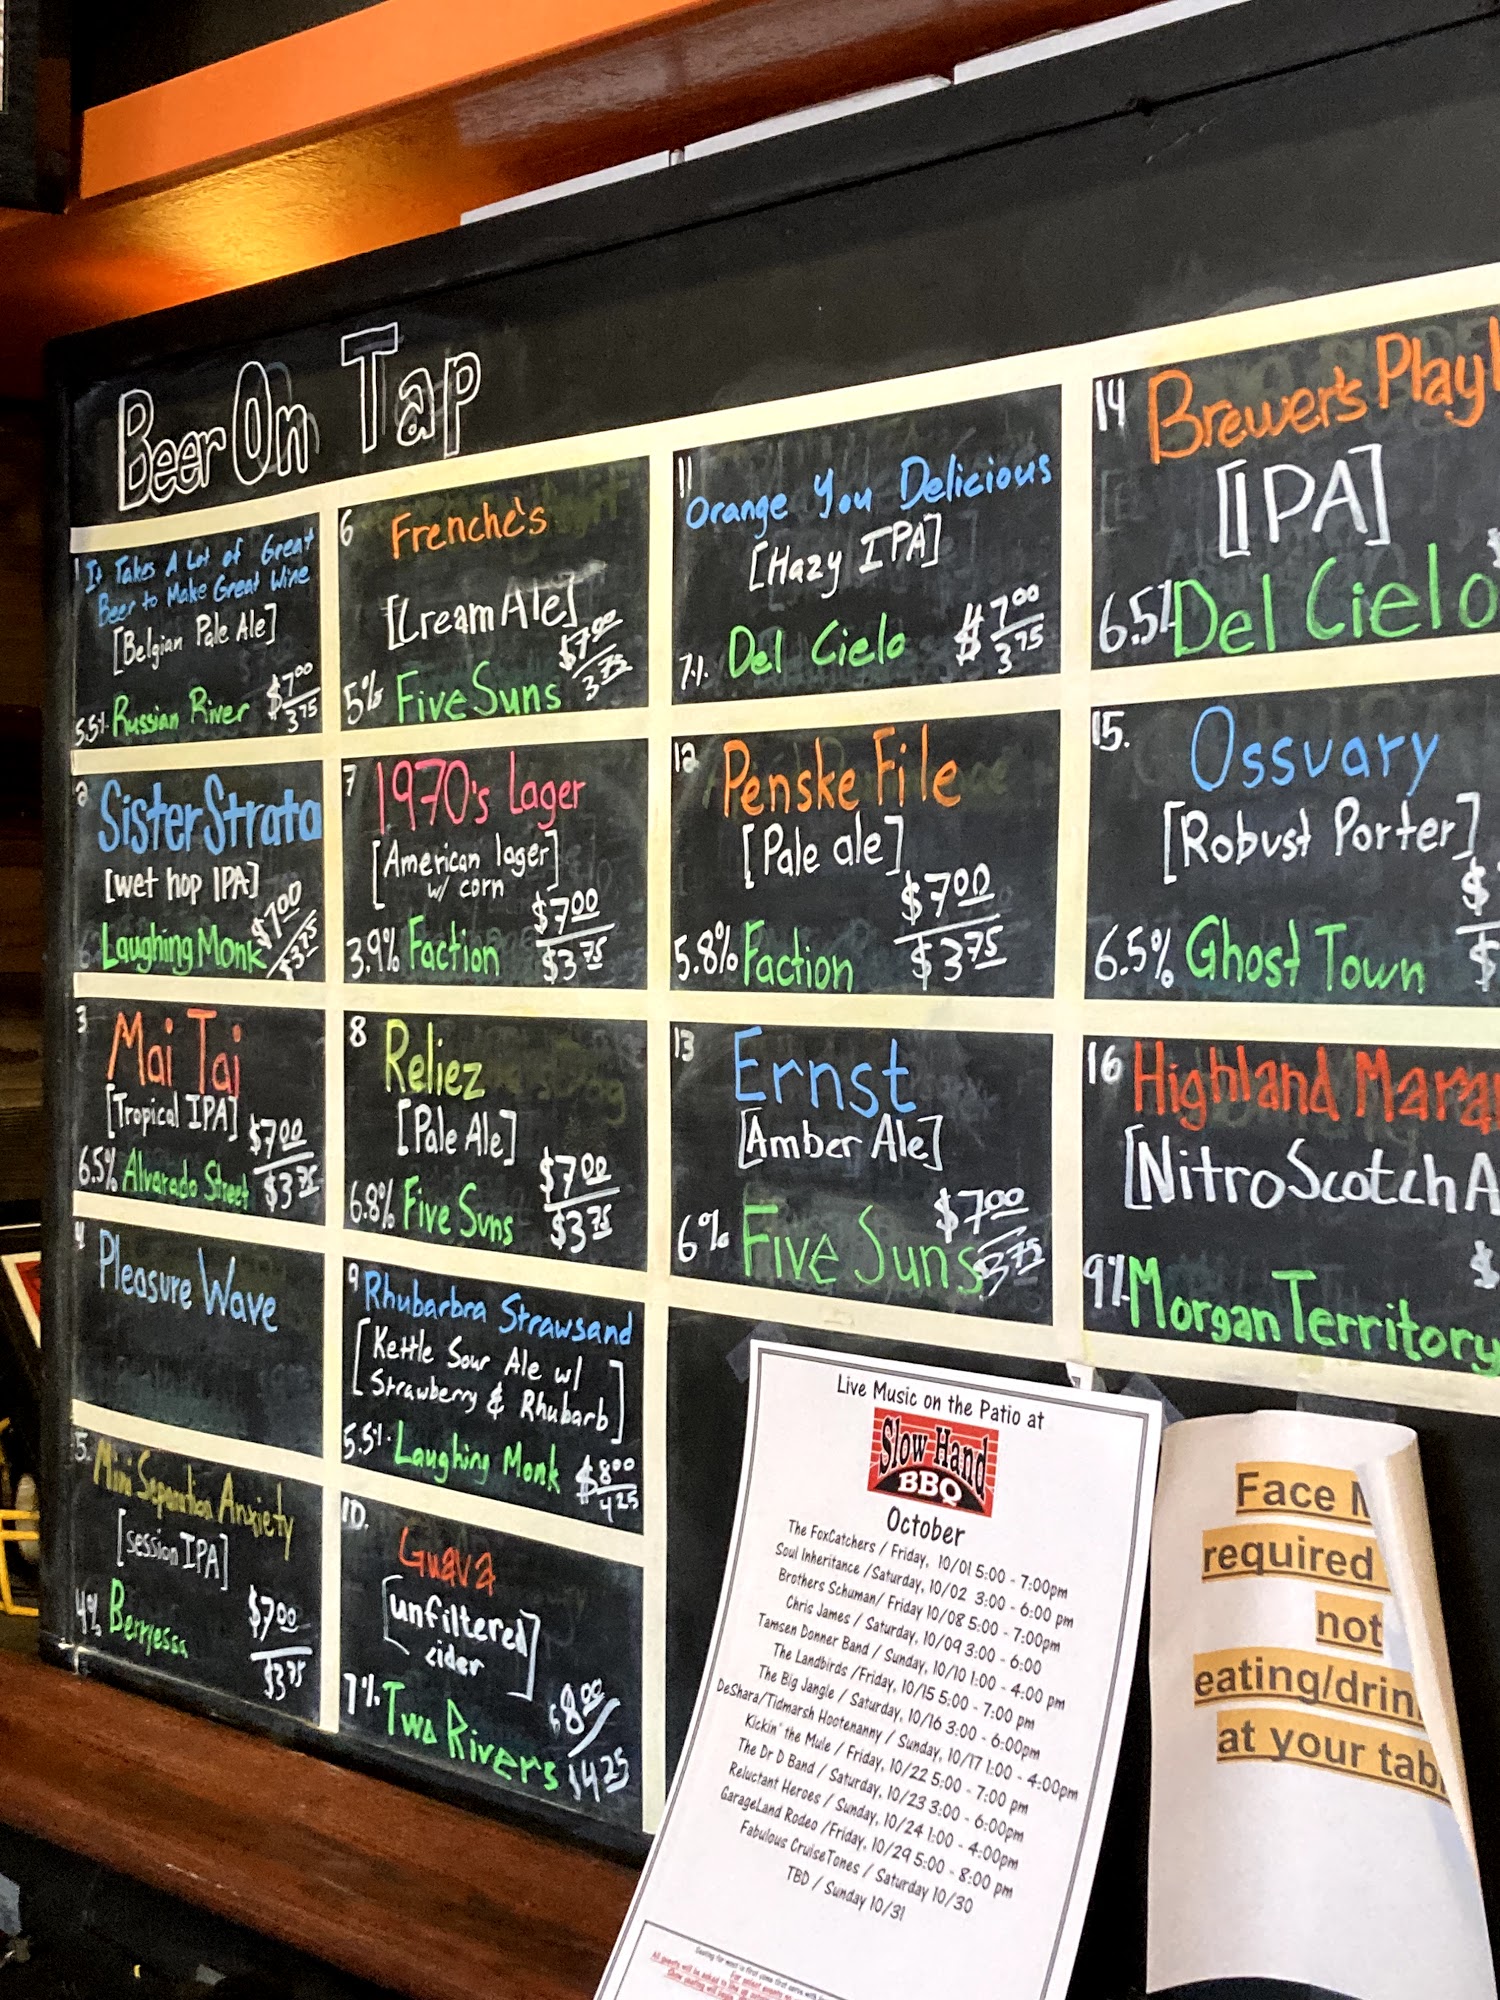 Beer On Tap
1 It Takes A Lot of Great
Beer to Make Great Wine
[Belgian Pale Ale]
5.5% Russian River $7.00
3.75
2 SisterStrata
[wet hop IPA]
Laughing Monk $7.00
$3.75
3 Mai Tai
[Tropical IPA]
6.5% Alvarado Street $7.00
$3.75
4 Pleasure Wave
5. Mini Separation Anxiety
[session IPA]
4% Berryessa $7.00
$3.75
6 Frenche's
[Cream Ale]
5% Five Suns $7.00
3.75
7 1970's Lager
[American lager]
w/ corn
3.9% Faction $7.00
$3.75
8 Reliez
[Pale Ale]
6.8% Five Suns $7.00
$3.75
9 Rhubarbra Strawsand
[Kettle Sour Ale w/
Strawberry & Rhubarb]
5.5% Laughing Monk $8.00
4.25
10. Guava
[unfiltered
cider]
7% Two Rivers $8.00
$4.25
11 Orange You Delicious
[Hazy IPA]
7% Del Cielo $7.00
3.75
12 Penske File
[Pale ale]
5.8% Faction $7.00
$3.75
13 Ernst
[Amber Ale]
6% Five Suns $7.00
3.75
14 Brewer's Playl
[IPA]
6.5% Del Cielo
15. Ossuary
[Robust Porter]
6.5% Ghost Town $
$
16 Highland Mara
[Nitro Scotch A
9% Morgan Territory $
Live Music on the Patio at
Slow Hand
BBQ
October
The FoxCatchers / Friday, 10/01 5:00 - 7:00pm
Soul Inheritance /Saturday, 10/02 3:00 - 6:00 pm
Brothers Schuman/ Friday 10/08 5:00 - 7:00pm
Chris James / Saturday, 10/09 3:00 - 6:00
Tamsen Donner Band / Sunday, 10/10 1:00 - 4:00 pm
The Landbirds /Friday, 10/15 5:00 - 7:00 pm
The Big Jangle / Saturday, 10/16 3:00 - 6:00pm
DeShara/Tidmarsh Hootenanny / Sunday, 10/17 1:00 - 4:00pm
Kickin' the Mule / Friday, 10/22 5:00 - 7:00 pm
The Dr D Band / Saturday, 10/23 3:00 - 6:00pm
Reluctant Heroes / Sunday, 10/24 1:00 - 4:00pm
GarageLand Rodeo /Friday, 10/29 5:00 - 8:00 pm
Fabulous CruiseTones / Saturday 10/30
TBD / Sunday 10/31
Face M
required
not
eating/drin
at your tab